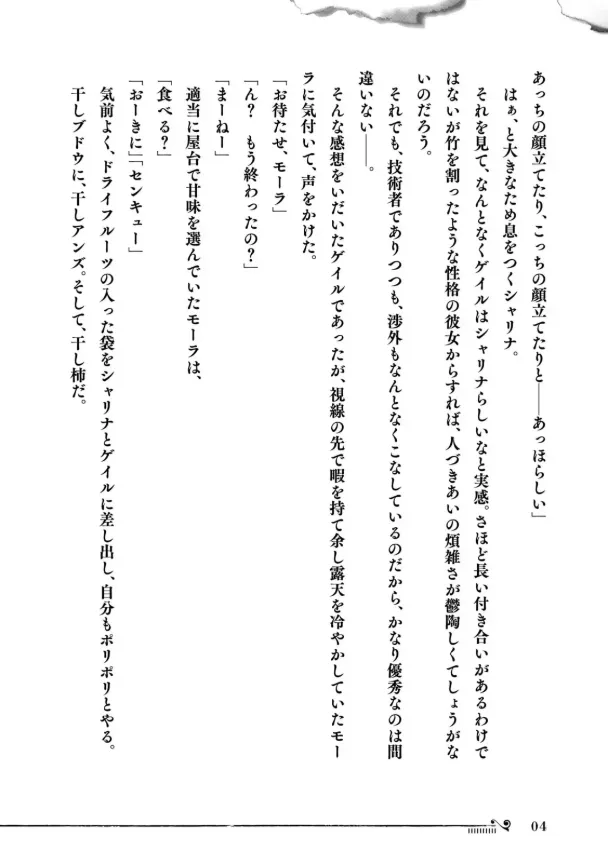 あっちの顔立てたり、こっちの顔立てたりと――あっほらしい」
　はぁ、と大きなため息をつくシャリナ。
　それを見て、なんとなくゲイルはシャリナらしいなと実感。さほど長い付き合いがあるわけで
はないが竹を割ったような性格の彼女からすれば、人づきあいの煩雑さが鬱陶しくてしょうがな
いのだろう。
　それでも、技術者でありつつも、渉外もなんとなくこなしているのだから、かなり優秀なのは間
違いない――。
　そんな感想をいだいたゲイルであったが、視線の先で暇を持て余し露天を冷やかしていたモー
ラに気付いて、声をかけた。
「お待たせ、モーラ」
「ん？　もう終わったの？」
「まーねー」
　適当に屋台で甘味を選んでいたモーラは、
「食べる？」
「おーきに」「センキュー」
　気前よく、ドライフルーツの入った袋をシャリナとゲイルに差し出し、自分もポリポリとやる。
　干しブドウに、干しアンズ。そして、干し柿だ。
04